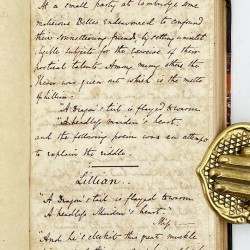 At a small party at Cambridge some
malicious Belles endeavoured to confound
their sonnetteering friends, by setting unintelli-
gible subjects for the exercise of their
poetical talents. Among many others the
Thesis was given out which is the motto
of Lillian:
"A Dragon's tail is flayed to warm
A headless Maiden's heart,"
and the following poem was an attempt
to explain the riddle.
Lillian.
"A Dragon's tail is flayed to warm
A headless Maiden's heart."
Miss
"And he's cleckit this great muckle